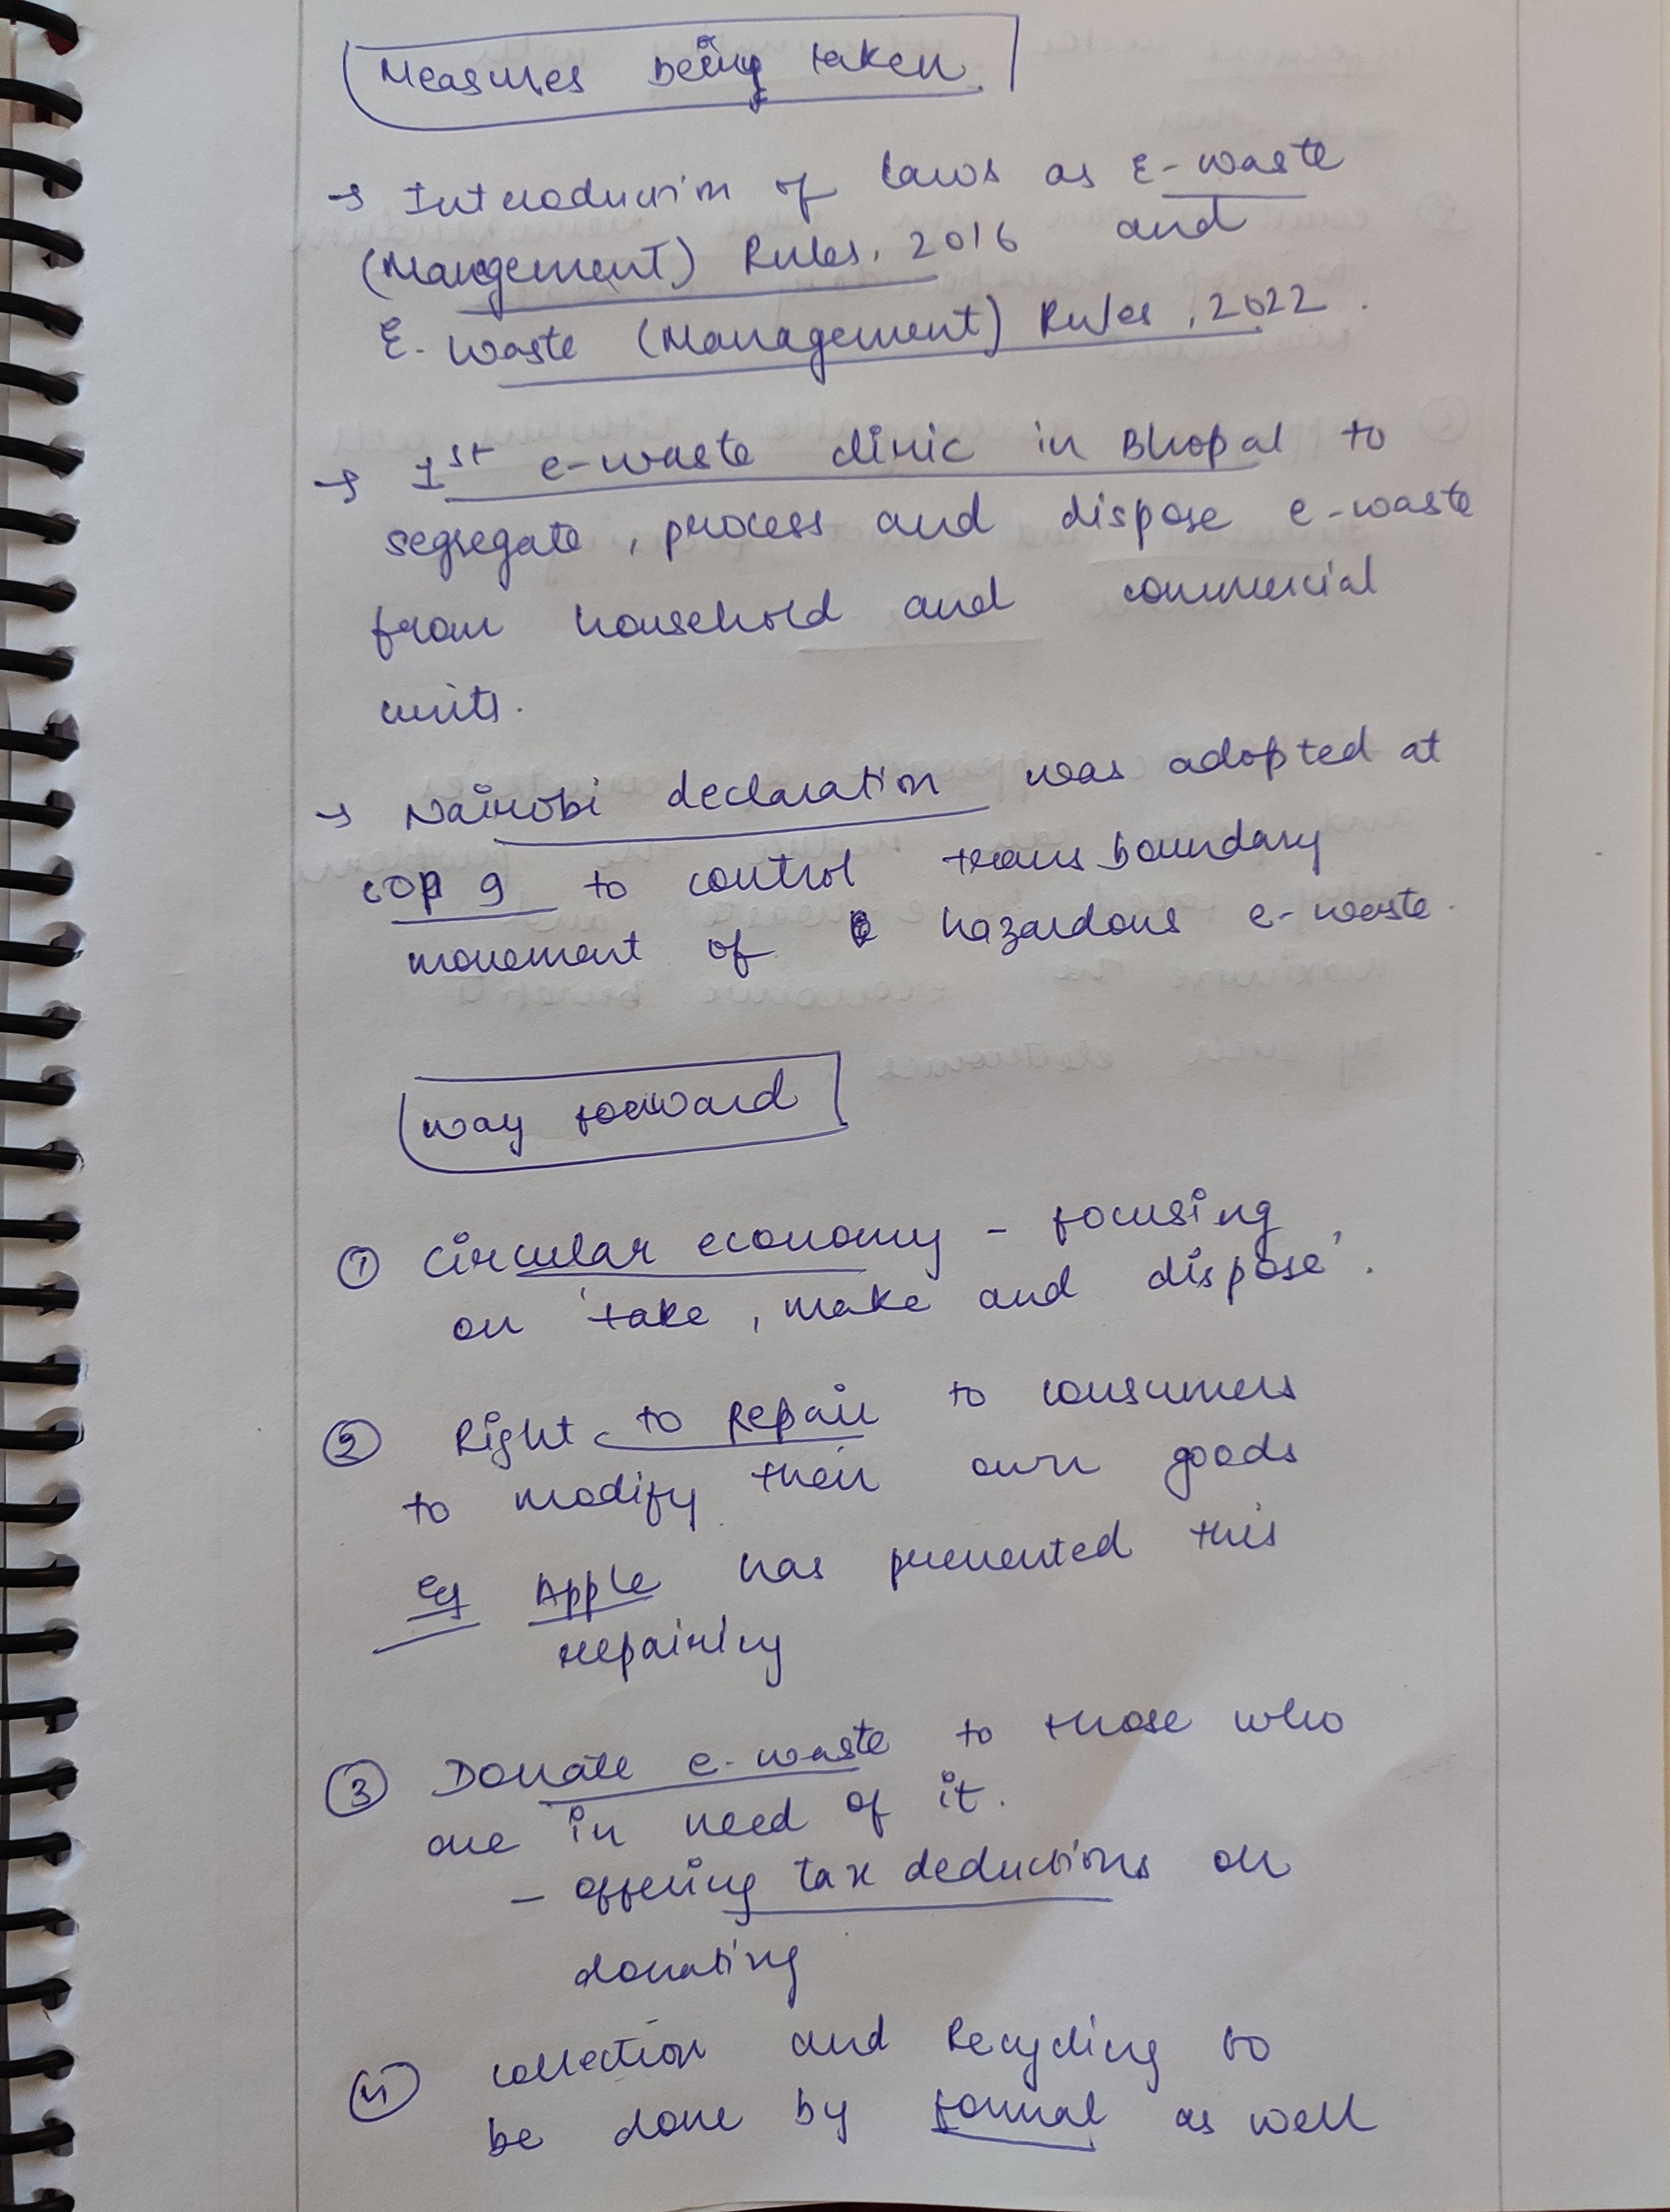 Measures being taken
→ Introduction of laws as E-waste
(Mangement) Rules, 2016 and
E-waste (Management) Rules, 2022.
→ 1st e-waste clinic in Bhopal to
segregate, process and dispose e-waste
from household and commercial
units.
→ Nairobi declaration was adopted at
COP 9 to control trans boundary
movement of hazardous e-waste.
way forward
① Circular economy - focusing
on 'take, make and dispose'.
② Right to Repair to consumers
to modify their own goods
Eg Apple has prevented this
repairing
③ Donate e-waste to those who
are in need of it.
- offering tax deductions on
donating
④ collection and Recycling to
be done by formal as well